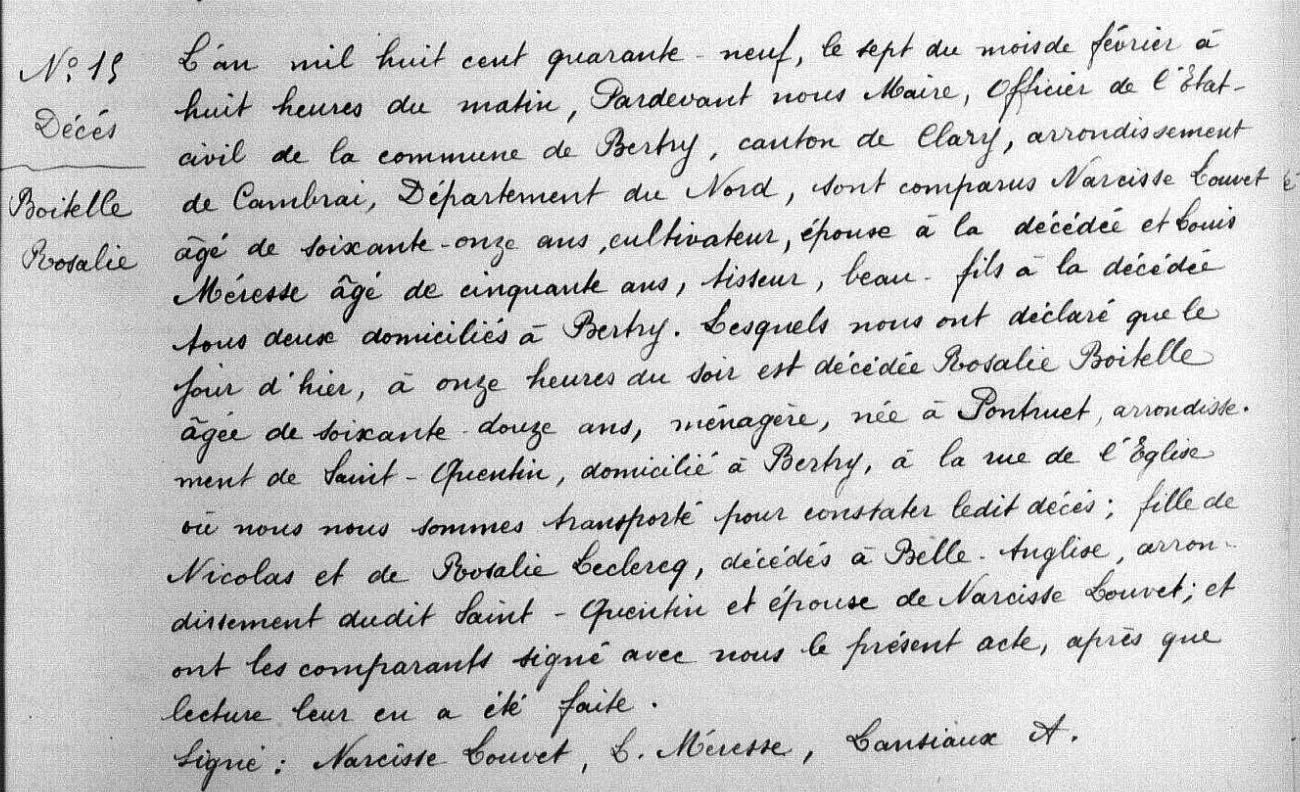 N° 15
Décés
Boitelle
Rosalie
L'an mil huit cent quarante-neuf, le sept du mois de février à
huit heures du matin, Pardevant nous Maire, Officier de l'Etat-
civil de la commune de Bertry, canton de Clary, arrondissement
de Cambrai, Département du Nord, sont comparus Narcisse Louvet
âgé de soixante-onze ans, cultivateur, épouse à la décédée et Louis
Méresse âgé de cinquante ans, tisseur, beau-fils à la décédée
tous deux domiciliés à Bertry. Lesquels nous ont déclaré que le
jour d'hier, à onze heures du soir est décédée Rosalie Boitelle
âgée de soixante-douze ans, ménagère, née à Pontruet, arrondisse-
ment de Saint-Quentin, domicilié à Bertry, à la rue de l'Eglise
où nous nous sommes transporté pour constater ledit décés; fille de
Nicolas et de Rosalie Leclercq, décédés à Belle-Anglise, arron-
dissement dudit Saint-Quentin et épouse de Narcisse Louvet; et
ont les comparants signé avec nous le présent acte, après que
lecture leur en a été faite.
Signé: Narcisse Louvet, L. Méresse, Lansiaux A.